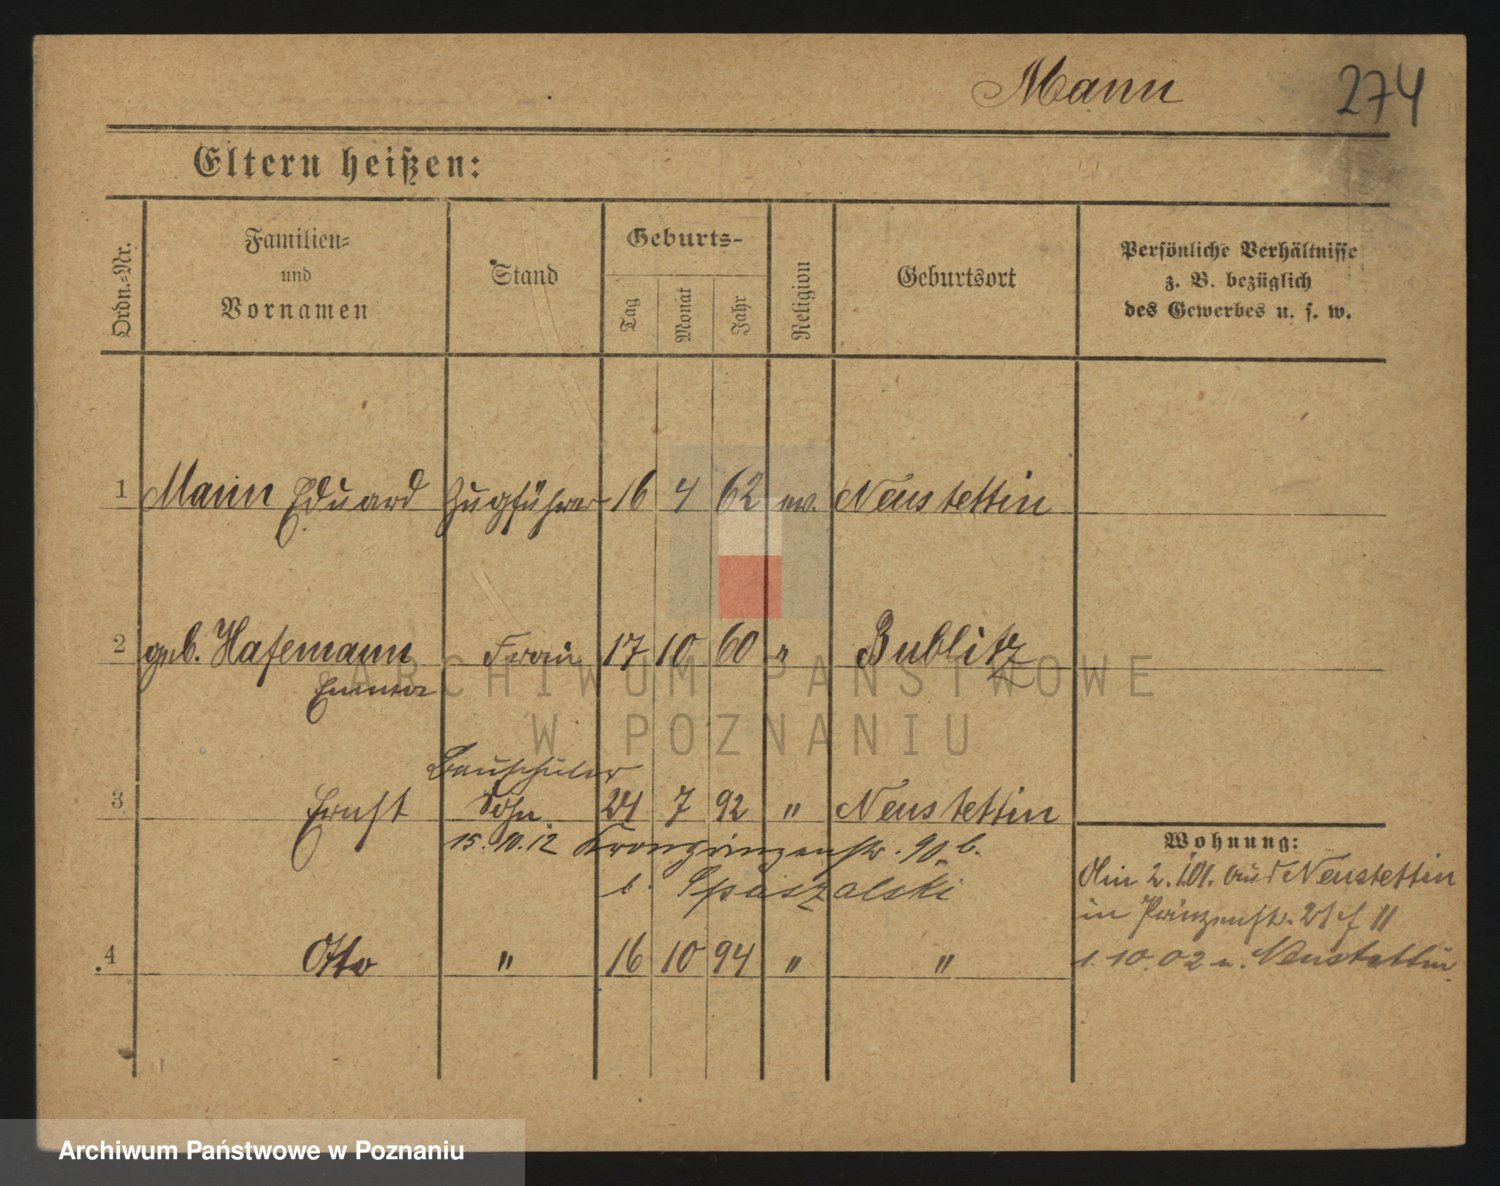 Mann 274
Eltern heißen:
Ordn.-Nr. Familien- und Vornamen Stand Geburts- Tag Monat Jahr Religion Geburtsort Persönliche Verhältnisse z. B. bezüglich des Gewerbes u. s. w.
1 Mann Eduard Zugführer 16 4 62 ev. Neustettin
2 geb. Hafemann Frau 17 10 60 " Bublitz
Emma
Bauschüler
3 Ernst Sohn. 24 7 92 " Neustettin
15.10.12 Kronprinzenstr. 90 b.
b. Spaszalski
Wohnung:
2. 1.01. Neustettin
in Prinzenstr.
4 Otto " 16 10 94 " "
1.10.02 n. Neustettin
ARCHIWUM PAŃSTWOWE
W POZNANIU
Archiwum Państwowe w Poznaniu